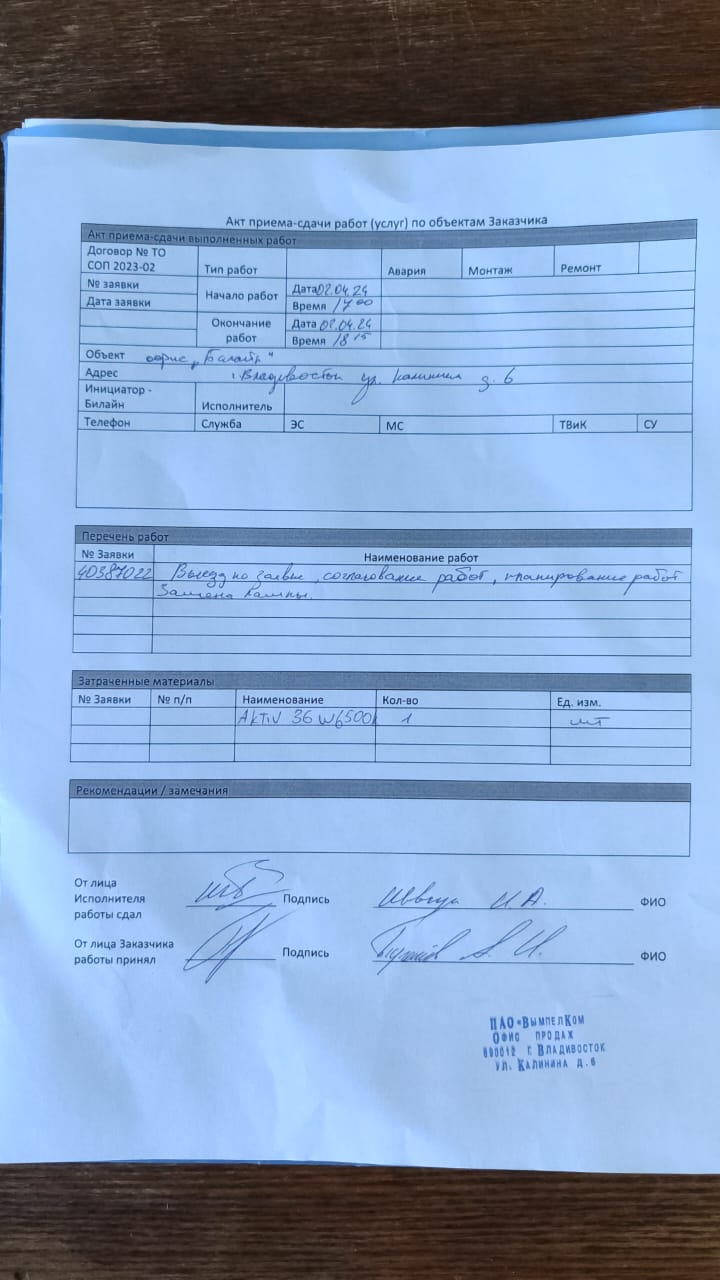 Акт приема-сдачи работ (услуг) по объектам Заказчика
Акт приема-сдачи выполненных работ
Договор № ТО СОП 2023-02 Тип работ Авария Монтаж Ремонт
№ заявки Начало работ Дата 02.04.24
Дата заявки Время 17 00
Окончание работ Дата 02.04.24
Время 18 15
Объект офис „Билайн"
Адрес г. Владивосток ул. Калинина д. 6
Инициатор - Билайн Исполнитель
Телефон Служба ЭС МС ТВиК СУ
Перечень работ
№ Заявки Наименование работ
40387022 Выезд по заявке, согласование работ, планирование работ
Замена лампы.
Затраченные материалы
№ Заявки № п/п Наименование Кол-во Ед. изм.
Aktiv 36 W6500k 1 шт
Рекомендации / замечания
От лица
Исполнителя Подпись И.А. ФИО
работы сдал
От лица Заказчика Подпись А. И. ФИО
работы принял
ПАО «ВымпелКом
Офис продаж
690012 г. Владивосток
ул. Калинина д.6